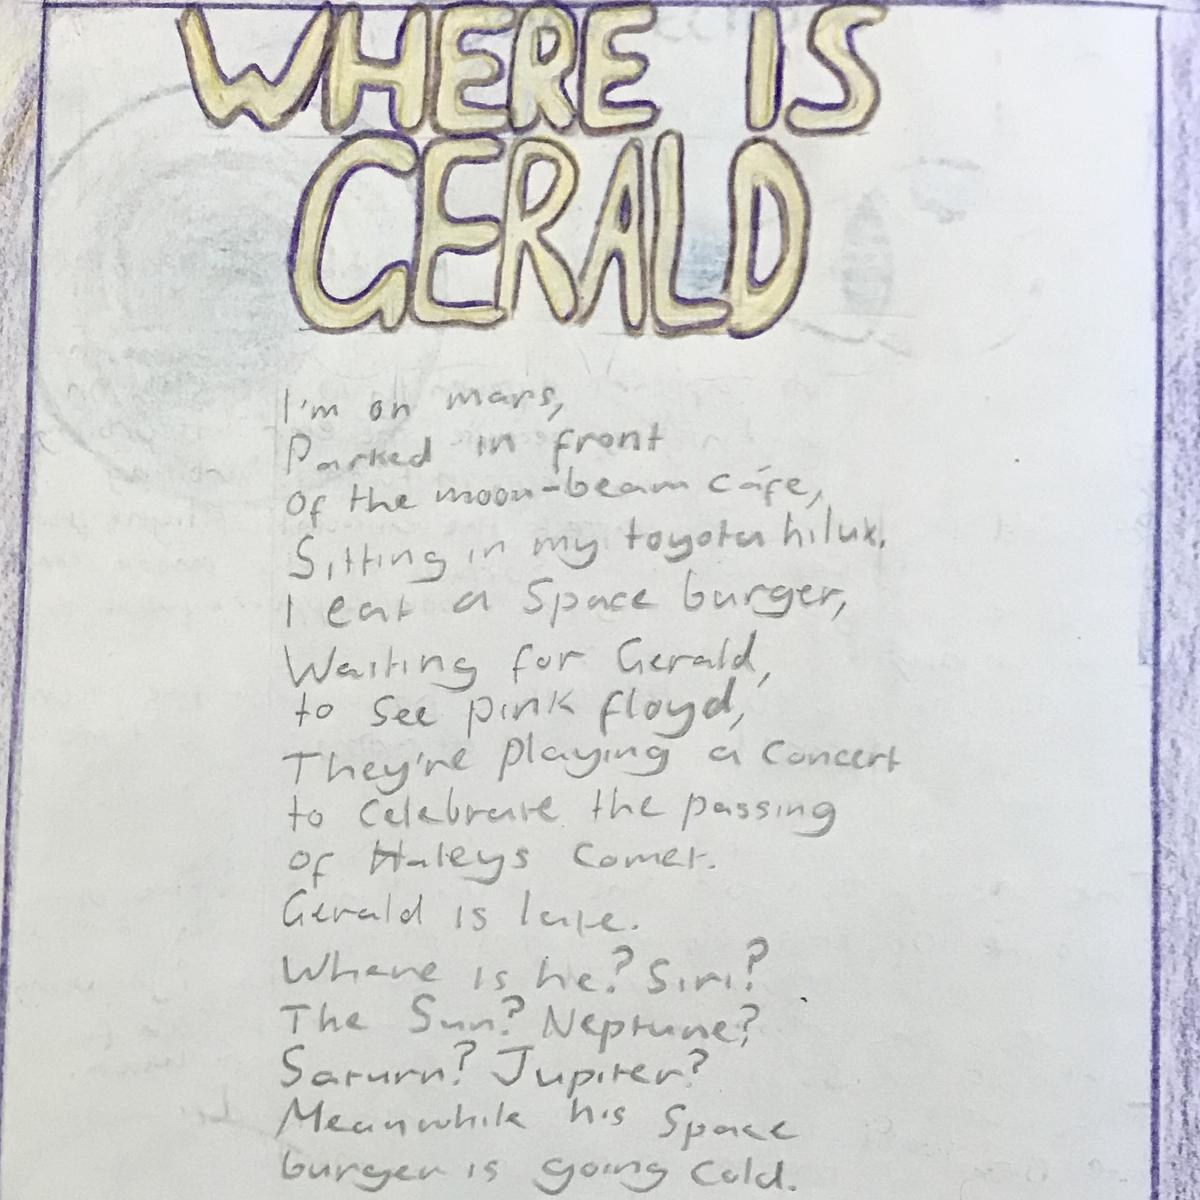 WHERE IS
GERALD
I'm on mars,
Parked in front
of the moon-beam cáfe,
Sitting in my toyota hilux.
I eat a Space burger,
Waiting for Gerald,
to see pink floyd,
They're playing a concert
to celebrate the passing
of Haleys Comet.
Gerald is late.
Where is he? Siri?
The Sun? Neptune?
Saturn? Jupiter?
Meanwhile his Space
burger is going cold.